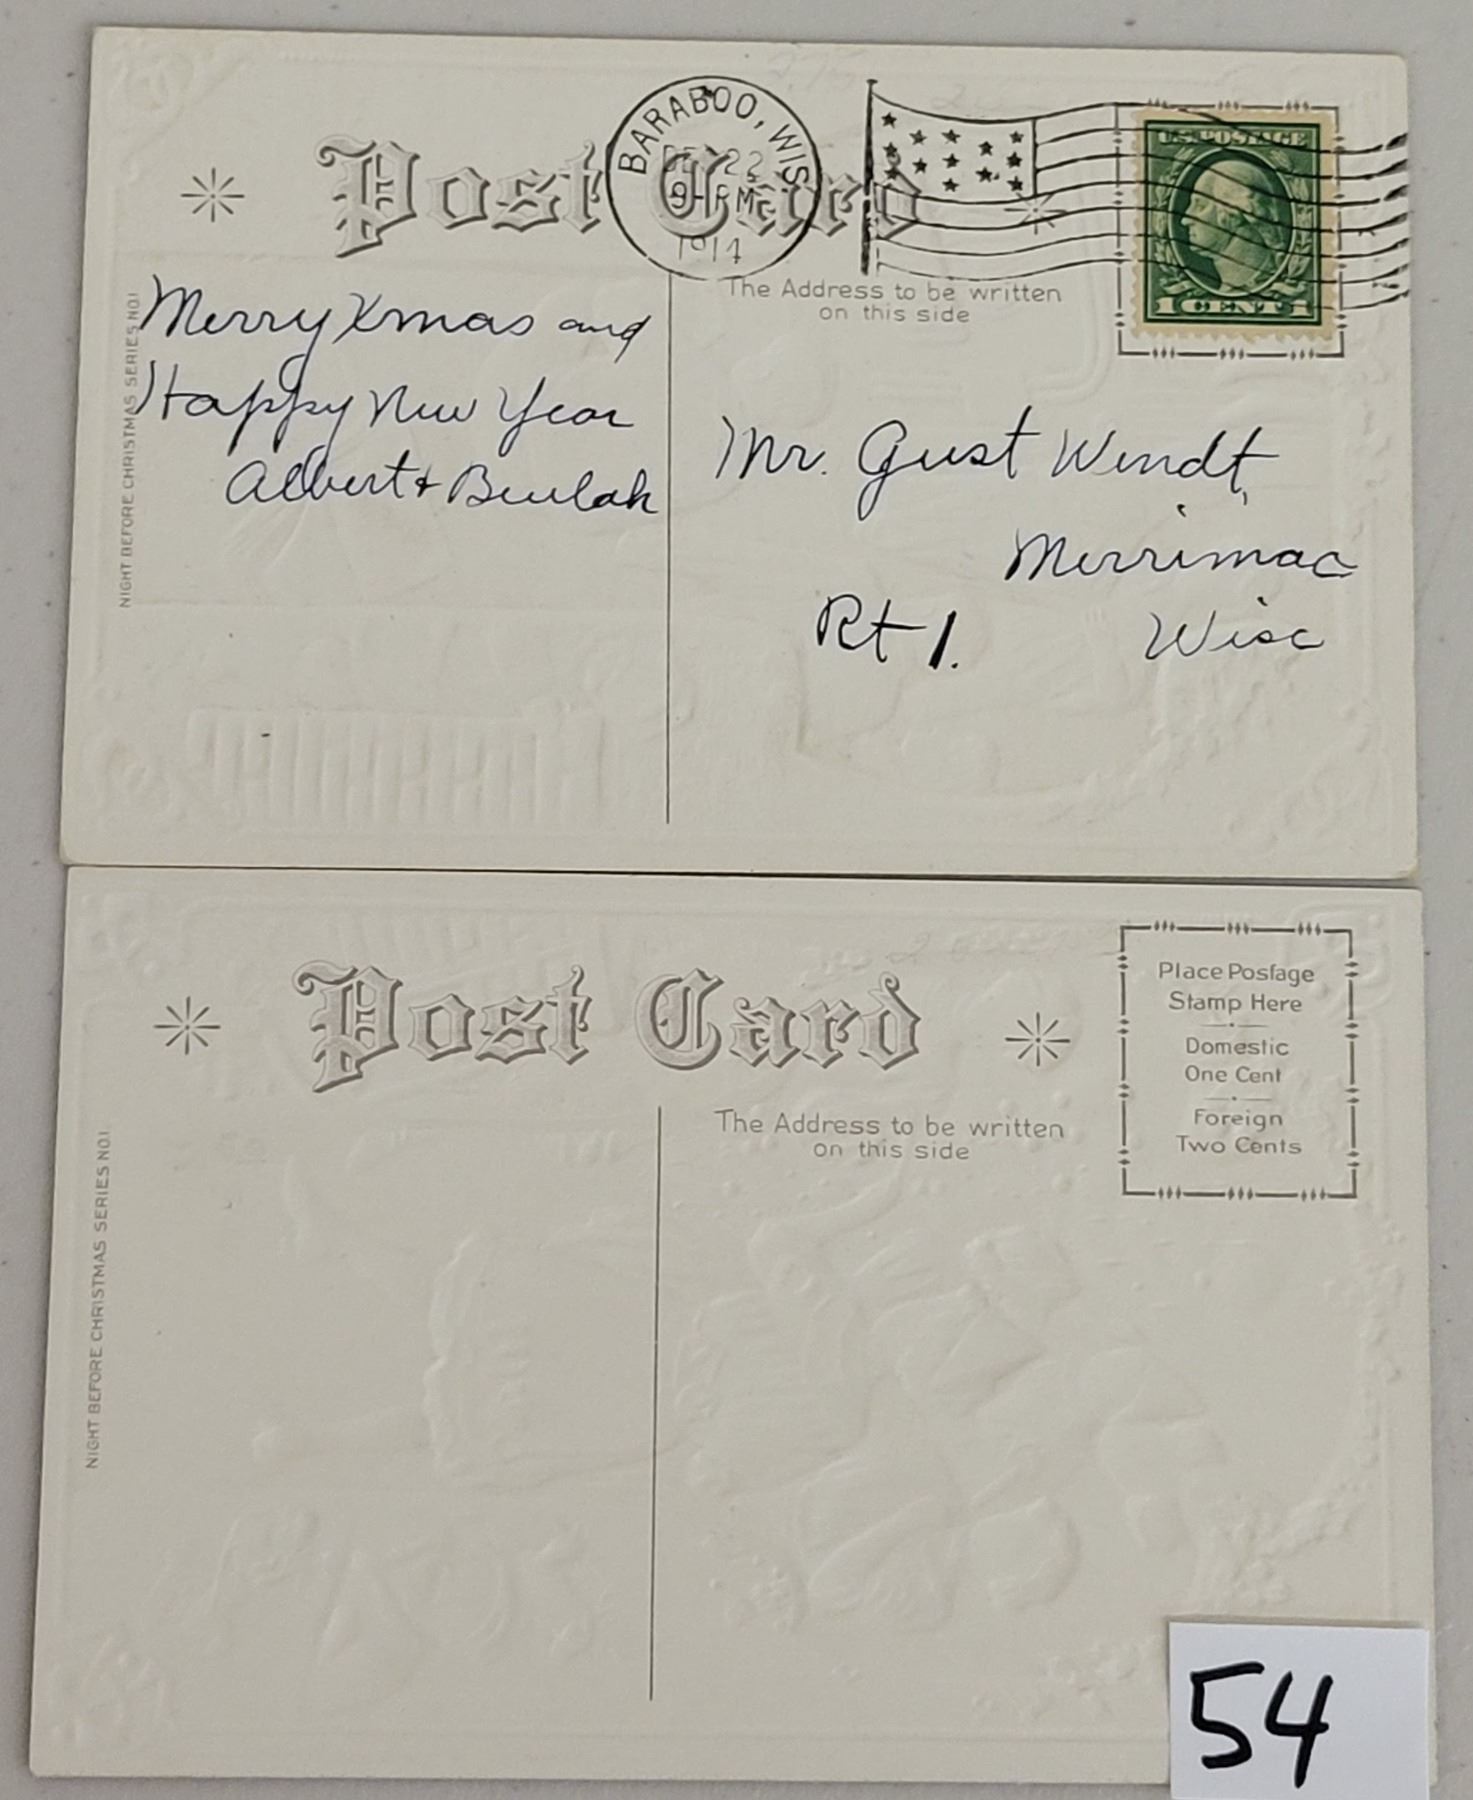 BARABOO, WIS.
DEC 22
9-PM
1914
U.S. POSTAGE
1 CENT 1
Post Card
The Address to be written
on this side
NIGHT BEFORE CHRISTMAS SERIES NO.1
Merry Xmas and
Happy New Year
Albert + Beulah
Mr. Gust Wendt,
Merrimac
Rt 1. Wisc
Post Card
Place Postage
Stamp Here
Domestic
One Cent
Foreign
Two Cents
The Address to be written
on this side
NIGHT BEFORE CHRISTMAS SERIES NO.1
54